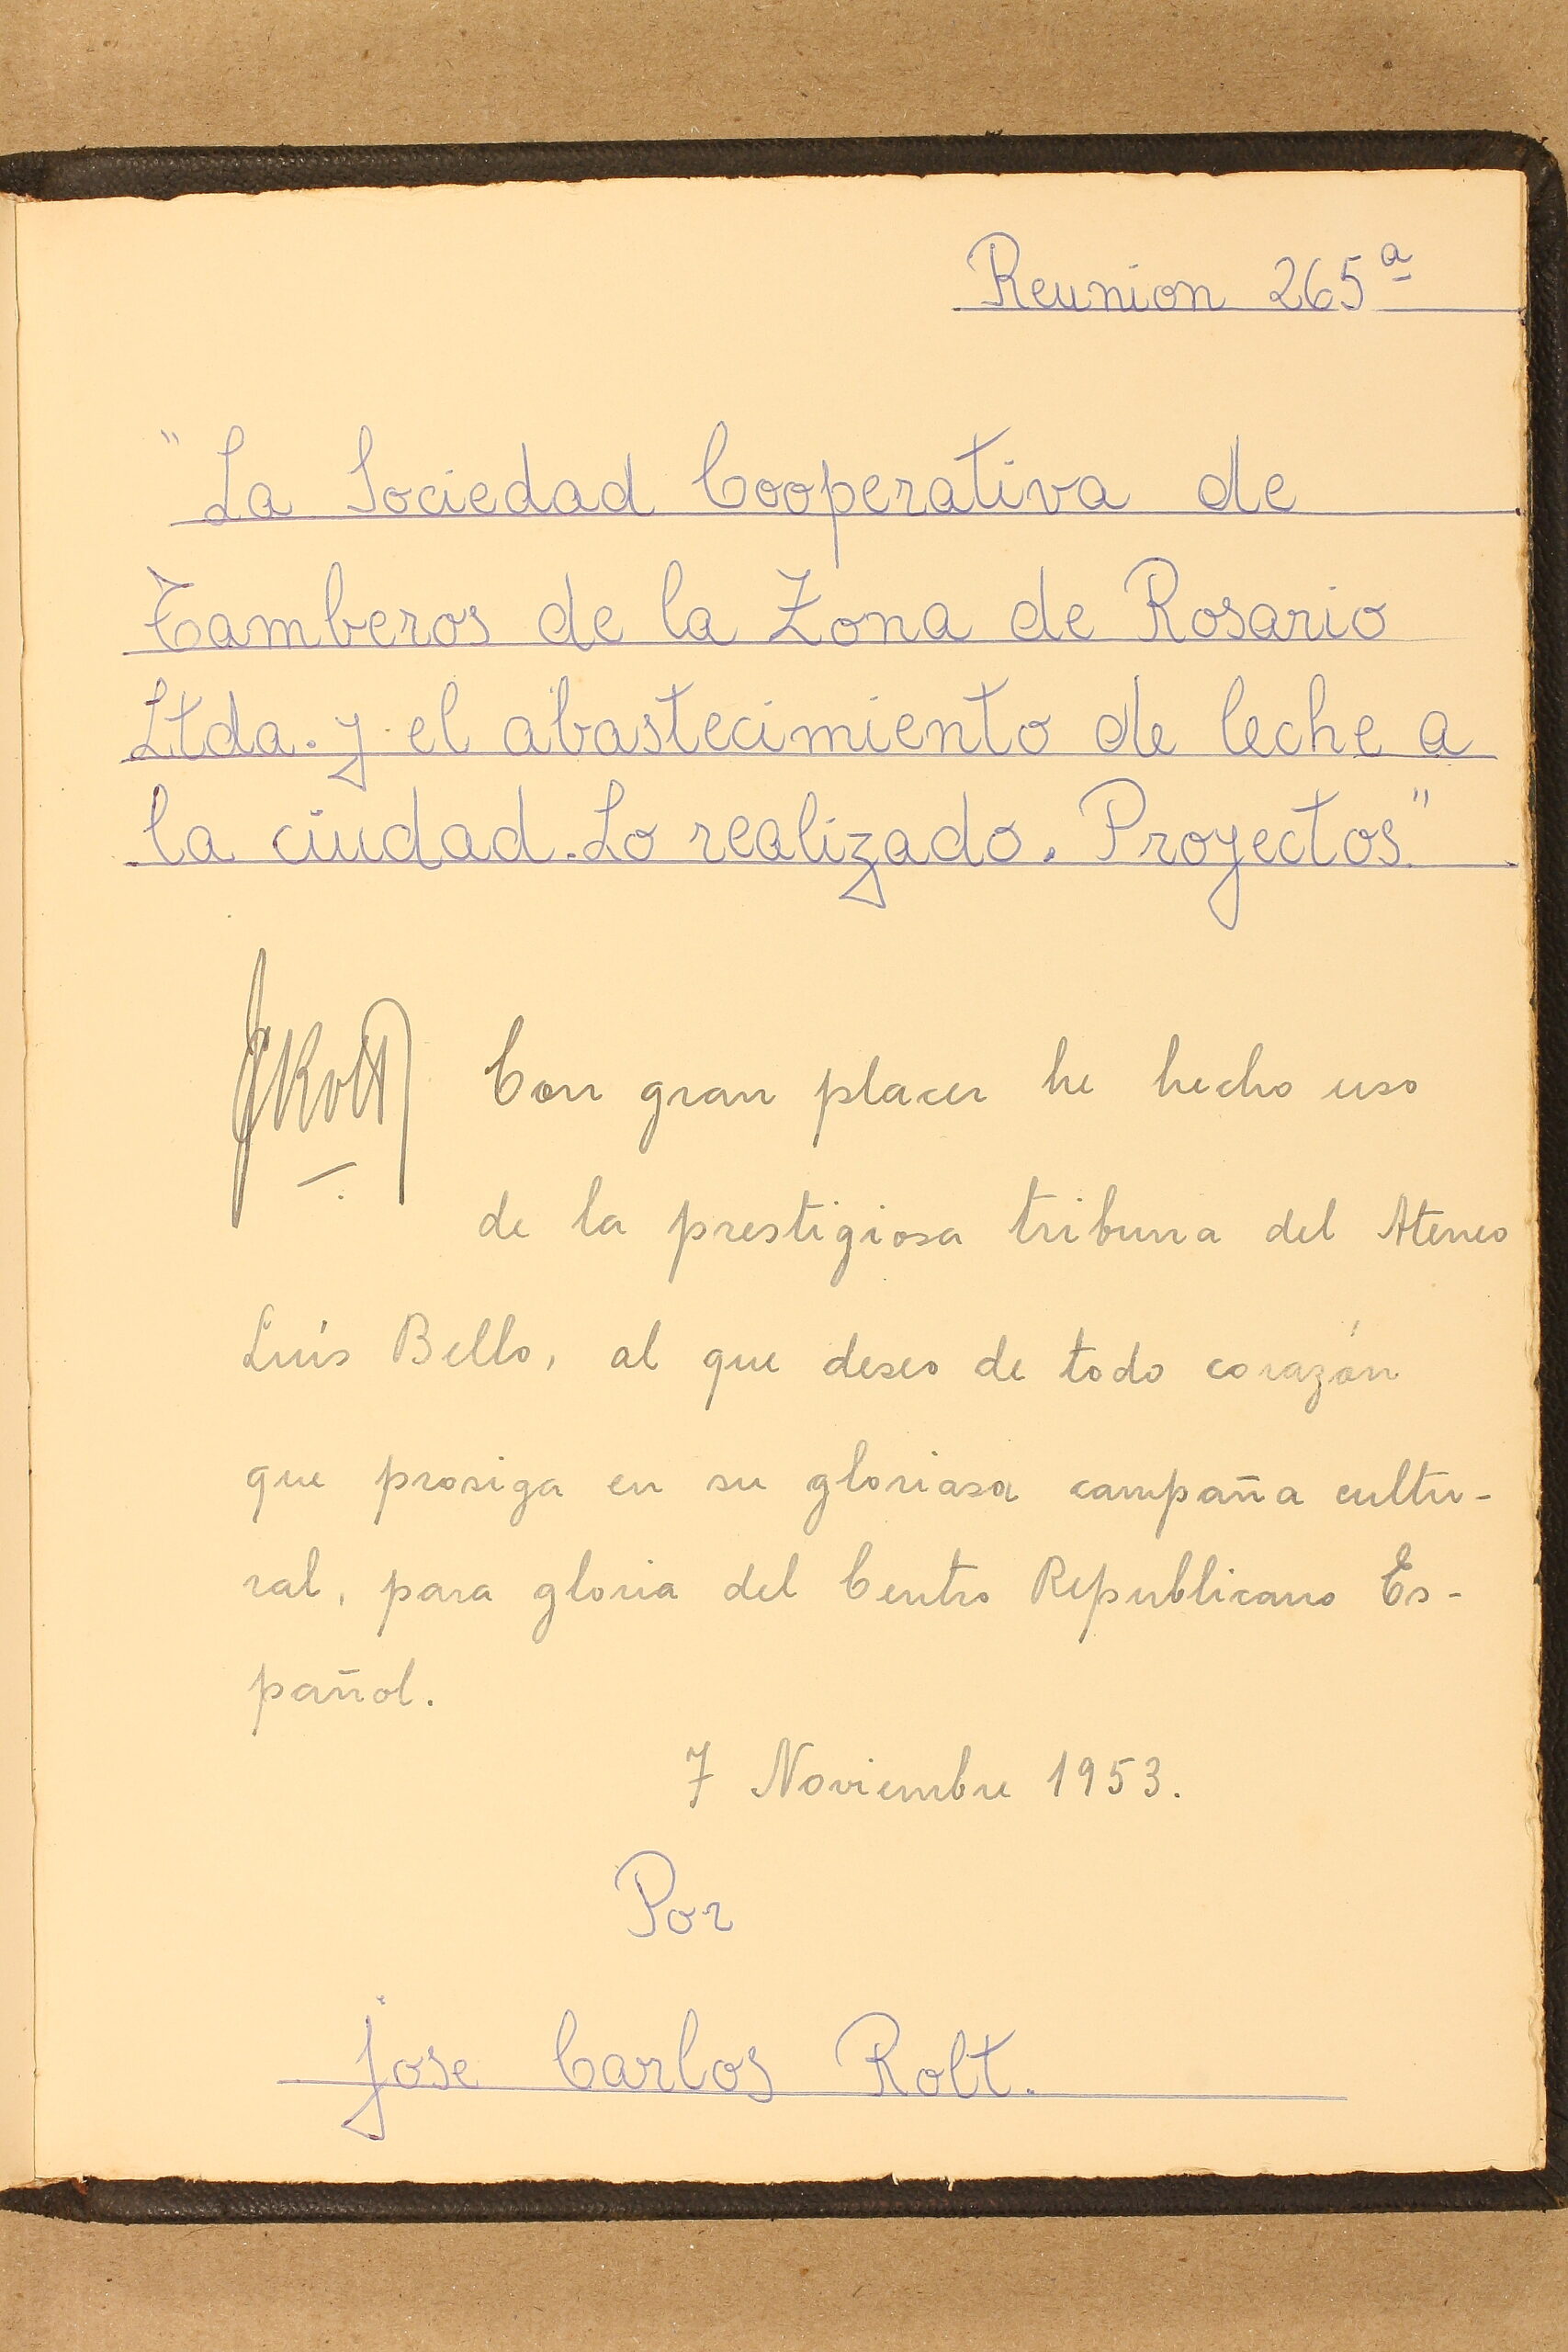 Reunion 265ª
"La Sociedad Cooperativa de
Tamberos de la Zona de Rosario
Ltda. y el abastecimiento de leche a
la ciudad. Lo realizado. Proyectos"
JRolt
Con gran placer he hecho uso
de la prestigiosa tribuna del Ateneo
Luis Bello, al que deseo de todo corazón
que prosiga en su gloriosa campaña cultu-
ral, para gloria del Centro Republicano Es-
pañol.
7 Noviembre 1953.
Por
Jose Carlos Rolt.